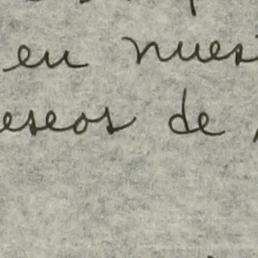 en nues
eseos de